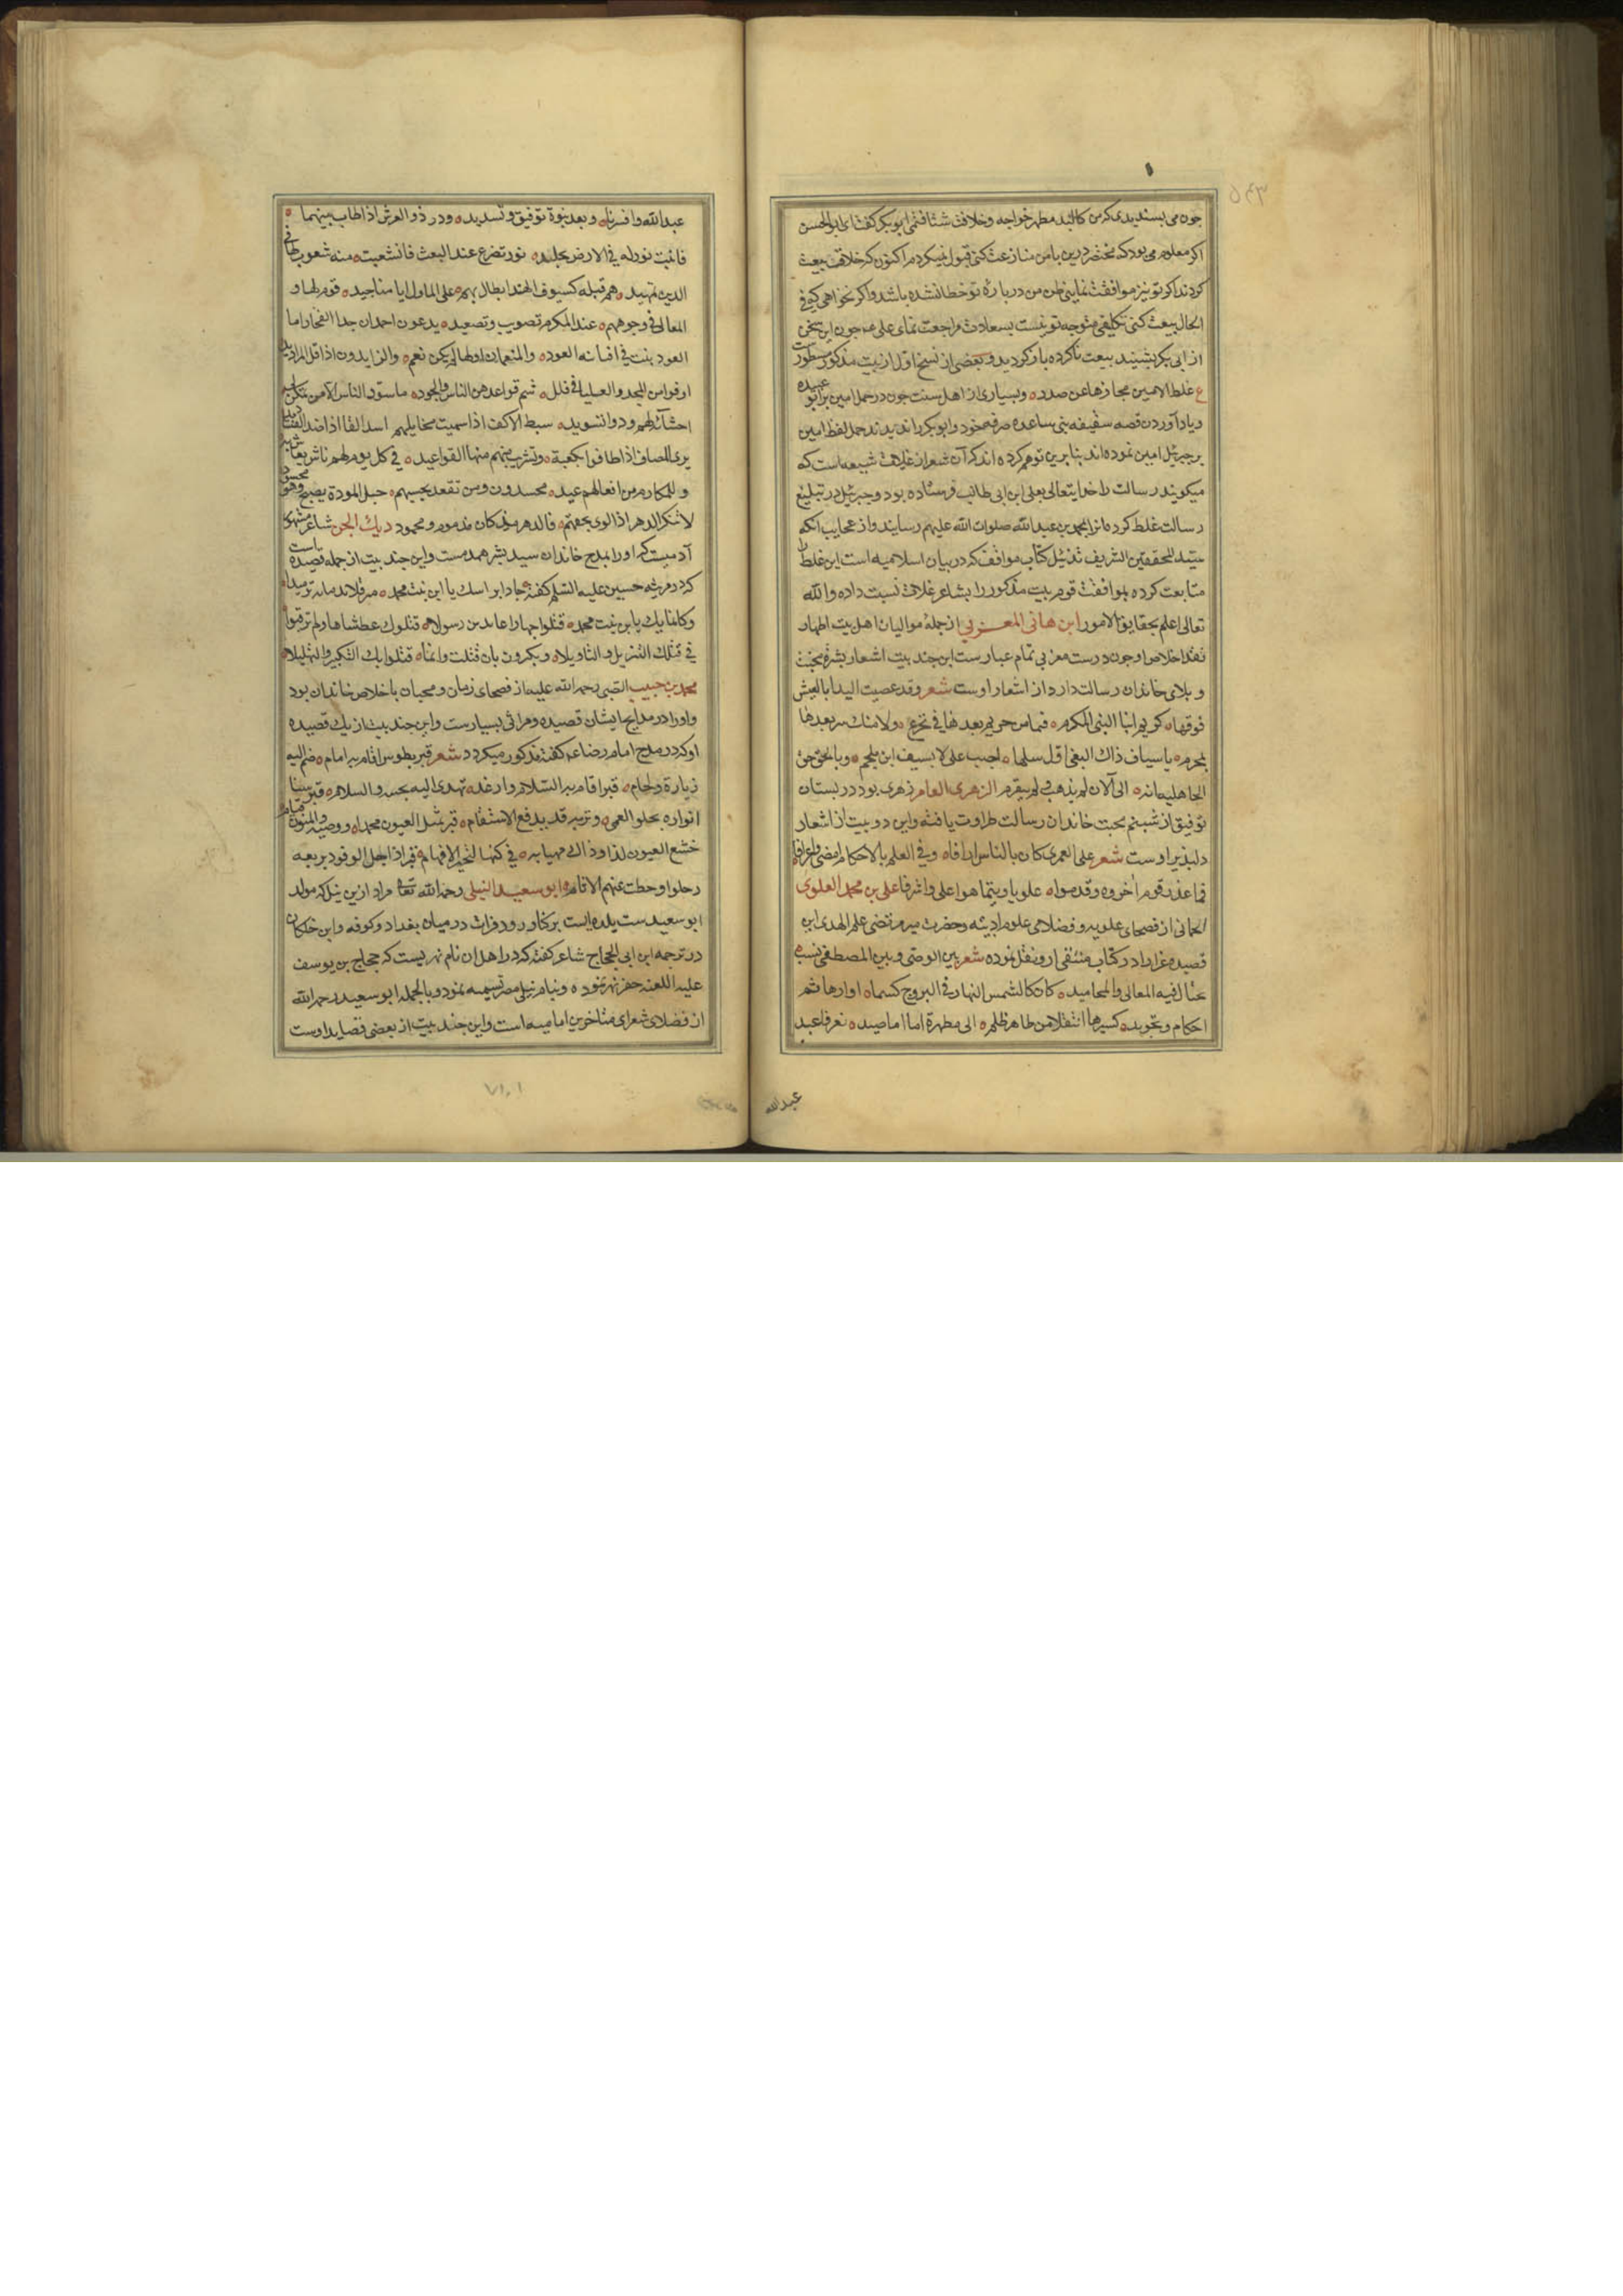 چون می‌پسندیدی که من کالبد مطهر خواجه و خلافت شتافتمی ابوبکر گفت ای ابوالحسن
اگر معلوم می بود که درین با من منازعت کنی قبول نمیکردم اکنون که خلاقت بیعت
کردند اگر تو نیز موافقت نمایی ظن من در بارهٔ تو خطا نشده باشد و اگر نخواهی که فی
الحال بیعت کنی تکلیفی متوجه تو نیست بسعادت مراجعت نمای علی چون این سخن
از ابی بکر بشنید بیعت ناکرده باز گردید و بعضی از نسخ اول از بیت مذکور مسطور
ع غلط الامین مجازها عن صدره وبسیاری از اهل سنت چون در حمل امین بر ابو عبیده
و یاد آوردن قصه سقیفه بنی ساعده صرفهٔ خود و ابوبکر را ندیدند حمل لفظ امین
بر جبرئیل امین نموده اند بنابرین توهم کرده اند که آن شعر از غلات شیعه است که
میکویند رسالت را خدایتعالی بعلی ابن ابی طالب فرستاده بود و جبرئیل در تبلیغ
رسالت غلط کرده انرا بمحمد بن عبدالله صلوات الله علیهم رسانید و از عجایب آنکه
سید المحققین الشریف تذئیل کتاب مواقف که در بیان اسلامیه است این غلط را
متابعت کرده بموافقت قوم بیت مذکور را بشاعر غلات نسبت داده والله
تعالی اعلم بحقایق الامور ابن هانی المغربی از جملهٔ موالیان اهل بیت اطهار
نقد اخلاص او چون درست مغربی تمام عیار است این چند بیت اشعار بشرهٔ محبت
و بلای خاندان رسالت دارد از اشعار اوست شعر وقد غصیت البیدا بالعیش
فوقها کریم ابنا النبی المکرم فما من حریم بعدها فی تحرج ولا منک سر بعدها
بمحرم باسیاف ذاک البغی اول سلها اصیب علی لا بسیف ابن ملجم وبالحقد حقد
الجاهلیه انه الی الآن لم یذهب ولم یتقرم الزهری العامر زهری بود در بستان
توفیق از شبنم محبت خاندان رسالت طراوت یافته و این دو بیت از اشعار
دلپذیر اوست شعر علی لعمری کان بالناس ارافاه وفی العلم بالاحکام امضی واعرفا
فما عذر قوم اخروه وقدموا علویا وتیما هو اعلی واشرفا علی بن محمد العلوی
الحمانی از فصحای علویه و فضلا‌می علوم ادبیه وحضرت میر مرتضی علم الهدی این
قصیده غرا را در کتاب منتقی ازو نقل نموده شعر بین الوصی وبین المصطفی نسب
تختال فیه المعالی والمحامید کانا کالشمس النهار فی البروج کما ادارها ثم
احکام وتجوید کسیرها انتقلا من طاهر ظلم الی مطهرة اما اماصید نعرفا عبد
عبدالله
عبدالله وافترقا وبعد نبوة توفیق وتسدید وذر ذو العرش اذا طاب بینهما
فانبث نور له فی الارض تجلید نور تفرع عند البعث فانشعبت منه شعوب لها فی
الدین تمهید هم قبله کسیوف الهند ابطال بهم علی المطاول ایا مناجید قوم لها و
المعالی فی وجوههم عند المکرم تصویب وتصعید یدعون احمد ان جدا الفخار اما
العود بنت فی افنانه العود والمنعمون اذا ما لم یکن نعم والذایدون اذا قل المذاوید
اوفوا من المجد والعلیا فی قلل شم قواعدهن الباس والجود ما سود الناس الا من تمکن فی
احشائه لهم ود وتسوید سبط الاکف اذا سمیت مخایلهم اسد اللقا اذا صد الصنادید
یزهی المطاف اذا طافوا بکعبته وتشرئب منها القواعید فی کل یوم لهم ناس یعاش به
وللمکارم من افعالهم عید محسدون ومن تقعد بحبهم حبل المودة یصبح وهو محسود
لا ینکر الدهر اذا الوی بحقهم فالدهر مذ کان مذموم ومحمود دیک الجن شاعر مشهور
آدمیست که او را بمدح خاندان سید بشر همدمست واین چند بیت از جمله قصیده است
که در مرثیه حسین علیه السلم کفته جاوا براسک یا ابن بنت محمد مترملا بدمائه ترمیلا
وکانما بک یا بن بنت محمد قتلوا جهارا عامدین رسولا قتلوک عطشانا ولم ترقبوا
فی قتلک التنزیل والتاویلا ویکبرون بان قتلت وانما قتلوا بک التکبیر والتهلیلا
محمد بن حبیب الضبی رحمه الله علیه از فصحای زمان و محبان باخلاص خاندان بود
واو را در مدایح ایشان قصیده و مراثی بسیارست و این چند بیت از یک قصیده
او که در مدح امام رضا ع کفته مذکور میکردد شعر قبر بطوس اقام به امام حتم الیه
زیارة ولمام قبر اقام به السلام واذ غدا تهدی الیه تحیه والسلام قبر سنا
انواره یجلو العمی وتربه قد یدفع الاسقام قبر تمثل للعیون محمدا ووصیه والمومنون قیام
خشع العیون لذا وذاک مهیابه فی کنهها تتحیر الافهام قبر اذا حل الوفود بربعه
رحلوا وحطت عنهم الاثام ابو سعید النیلی رحمه الله تعالی مراد ازین نیل که مولد
ابو سعید ست بلده ایست بر کنار رود فرات در میان بغداد وکوفه وابن خلکان
در ترجمه ابن ابی الحجاج شاعر کفته که در اهل آن نام نهریست که حجاج بن یوسف
علیه اللعنه حفر نهر نموده وبنام نیل مصر تسمیه نمود و بالجمله ابو سعید رحمه الله
از فضلای شعرای متاخرین امامیه است واین چند بیت از بعضی قصاید اوست